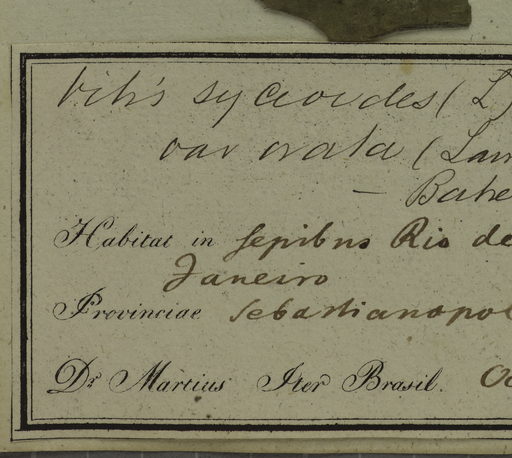 Vitis sycioides (L)
var ovata (Lam
– Bake
Habitat in sepibus Rio de
Janeiro
Provinciae Sebastianopol
Dr Martius Iter Brasil. Oc